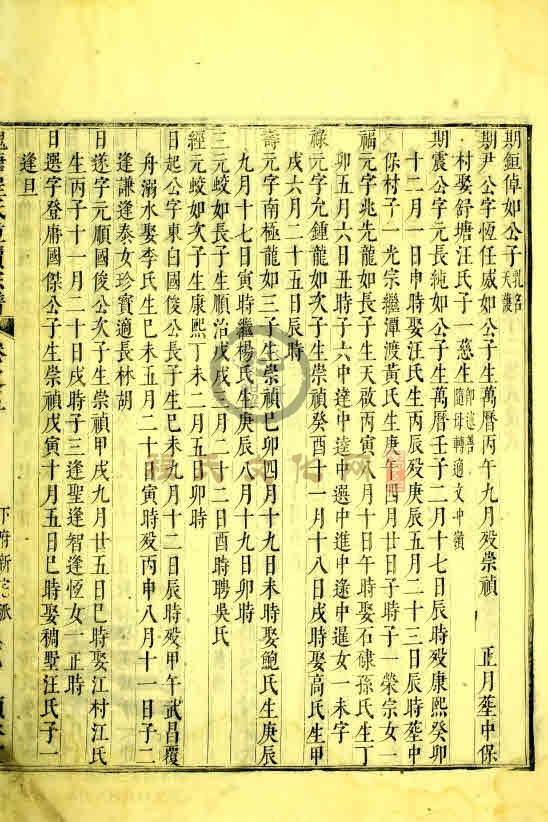 期鉅倬如公子乳名天護
期尹公字恆任威如公子生萬曆丙午九月殁崇禎 正月葬中保
村娶舒塘汪氏子一慈生
隨母轉適文中嶺
期震公字元長純如公子生萬曆壬子二月十七日辰時殁康熙癸卯
十二月一日申時娶汪氏生丙辰殁庚辰五月二十三日辰時葬中
保村子一光宗繼潭渡黃氏生庚午四月廿日子時子一榮宗女一
福元字兆先龍如長子生天啟丙寅八月十日午時娶石碌孫氏生丁
卯五月六日丑時子六中達中逵中選中進中逢中暹女一未字
祿元字允鍾龍如次子生崇禎癸酉十一月十八日戌時娶高氏生甲
戌六月二十五日辰時
壽元字南極龍如三子生崇禎己卯四月十九日未時娶鮑氏生庚辰
九月十七日寅時繼楊氏生庚辰八月十九日卯時
三元蛟如長子生順治戊戌三月二十二日酉時聘吳氏
經元蛟如次子生康熙丁未二月五日卯時
日起公字東白國俊公長子生己未九月十二日辰時殁甲午武昌覆
舟溺水娶李氏生己未五月二十日寅時殁丙申八月十一日子二
逢謙逢泰女珍寶適長林胡
日遂字元順國俊公次子生崇禎甲戌九月廿五日巳時娶江村江氏
生丙子十一月二十日戌時子三逢聖逢智逢恆女一正時
日選字登庸國傑公子生崇禎戊寅十月五日巳時娶稠墅汪氏子一
逢旦